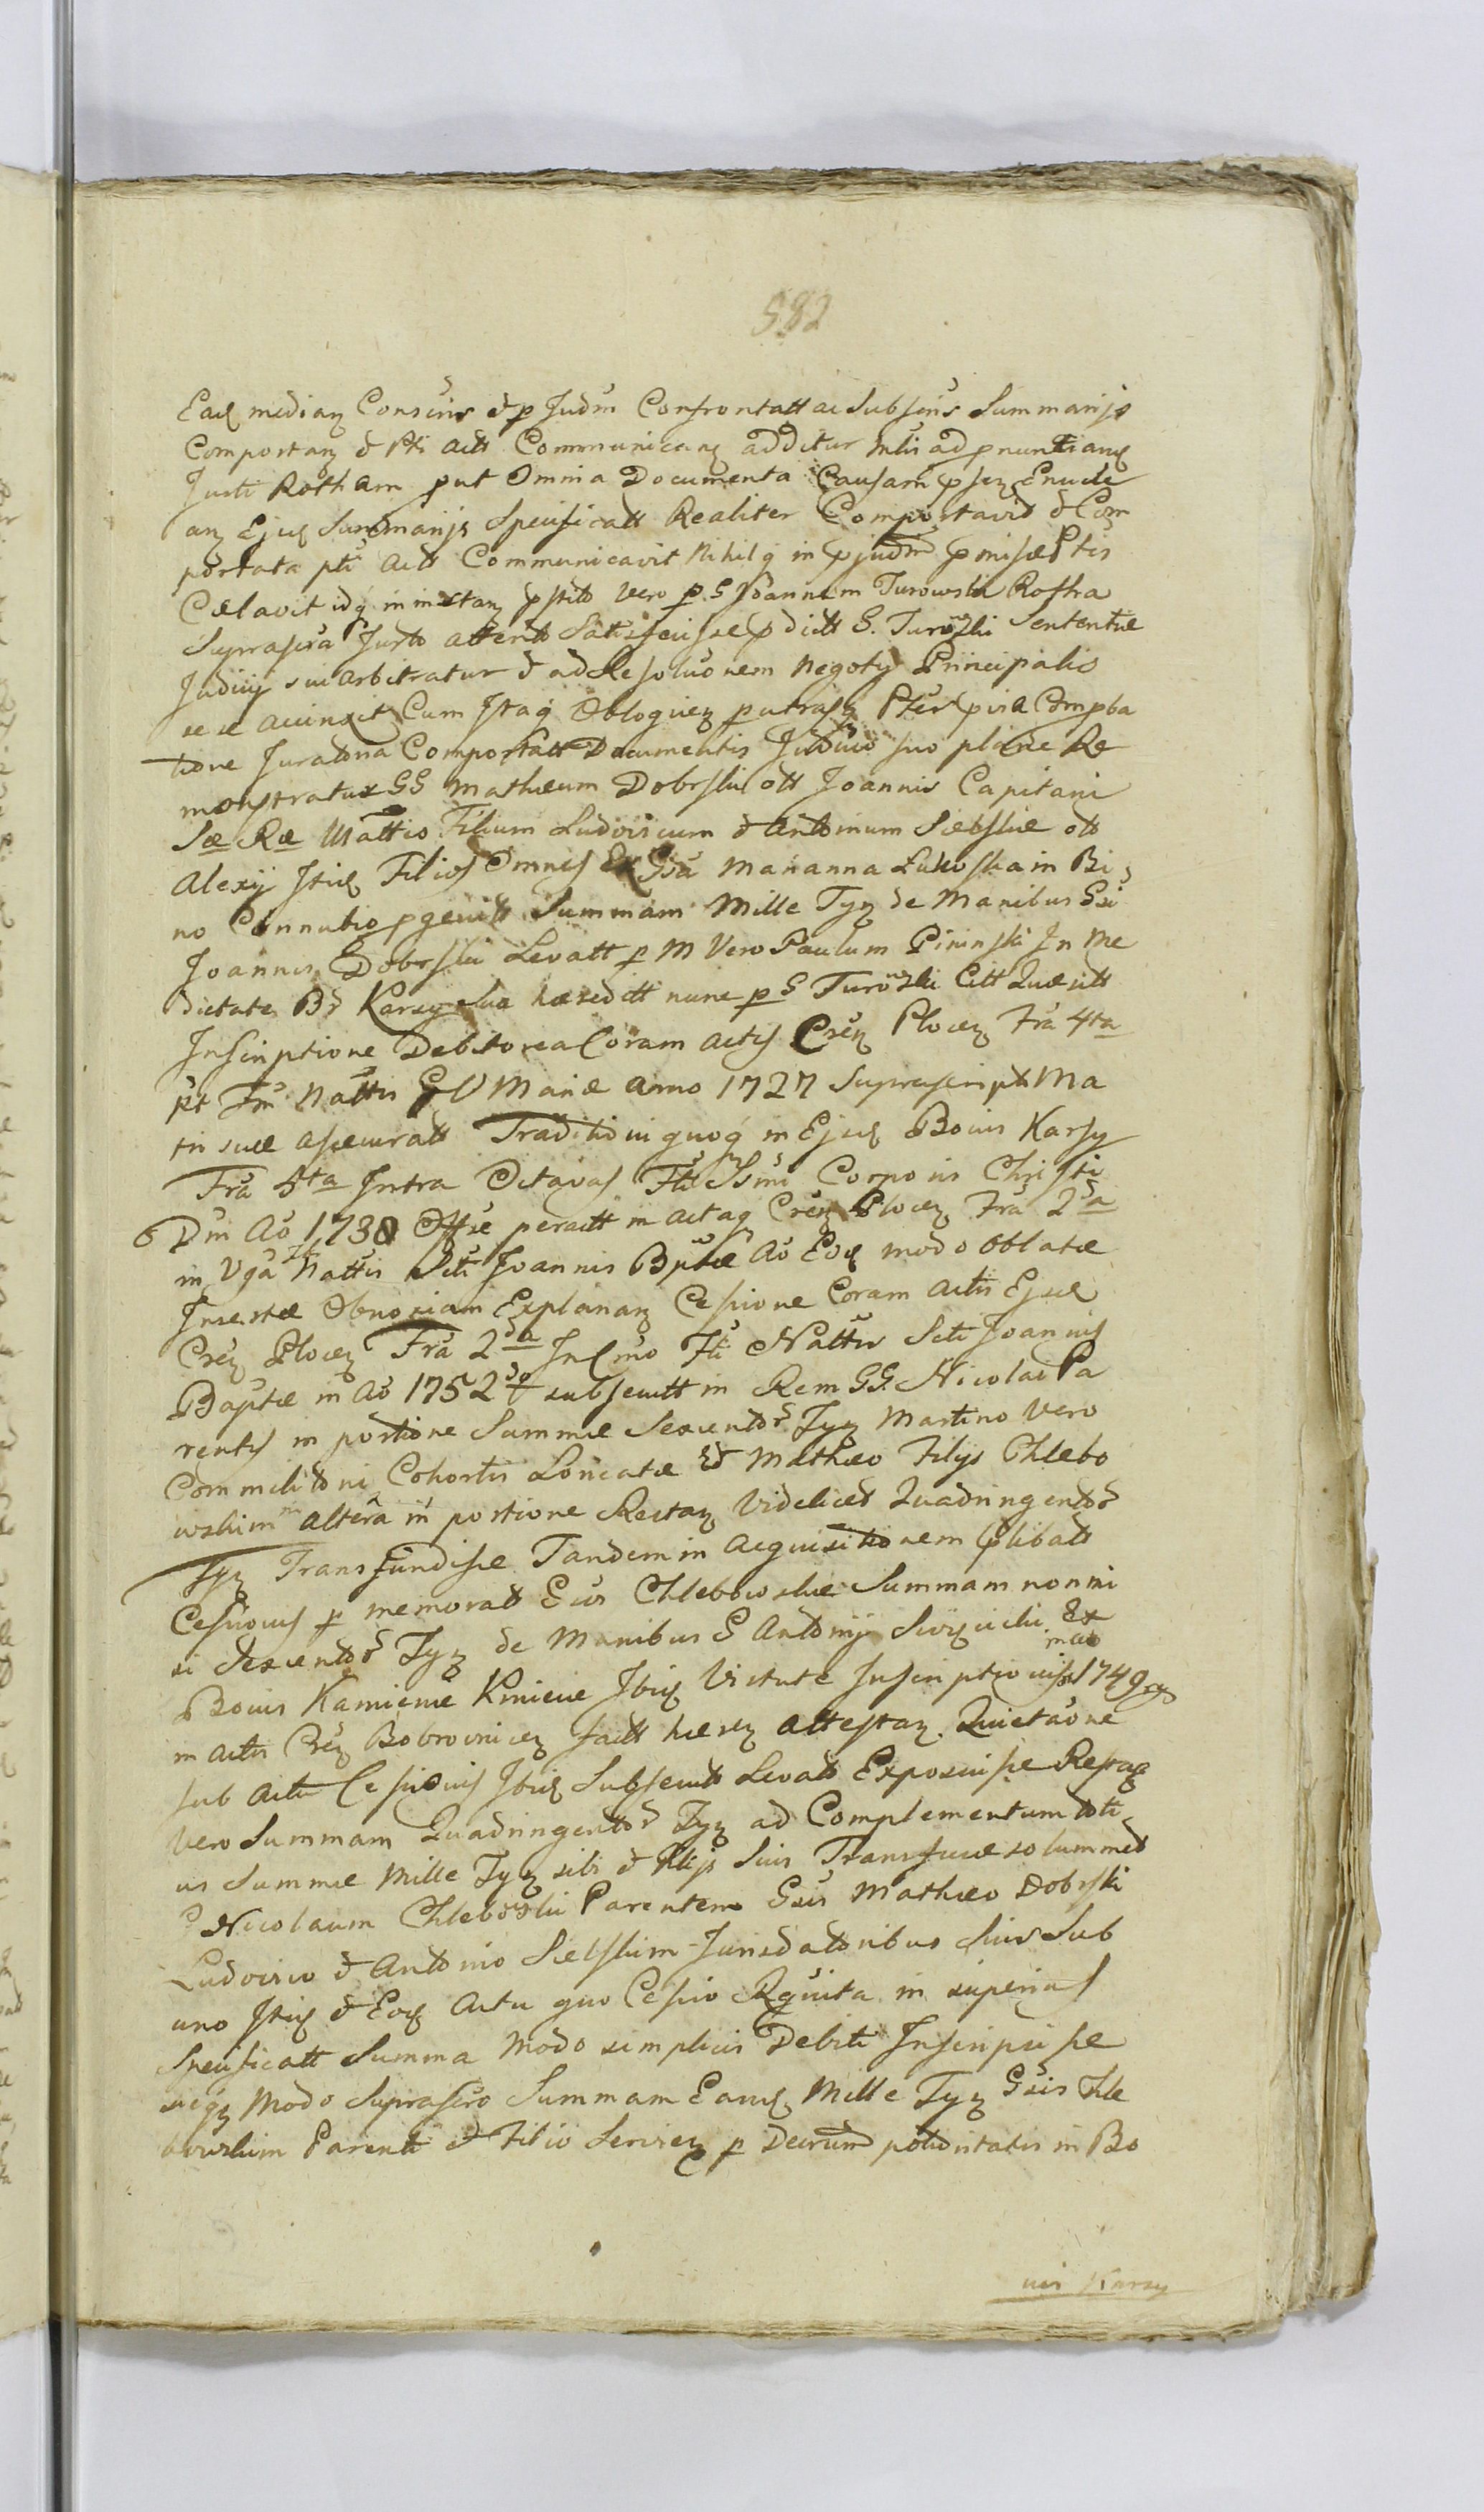 582
Eaq mediaꝫ Conscius & p Judm Confrontatt ac Subscius Summarijs
Comportaꝫ & Pti actt Communicaꝫ additur
Justi Rotham put Omnia Documenta Causam Enucle
aꝫ Ejusq Summarijs Specificatt Realiter Comportavit & Com
portata pti Actt Communicavit Nihilq in
Celavit idq in instaꝫ Vero p G Joannem Turowski Rostra
Suprascra Justo attento Satisfecisse dictt G. Turowski Sententiæ
Judicij sui arbitratur & ad Resoluõnem Negoty Principalis
se se accinxit Cum Itaq Obloqueꝫ putrasꝫ
tione Juratoria Comportatt Documentis Judicio suo plane Re
monstratur GG Mathæum Dobrski ott Joannis Capitani
Sæ Ræ Mattis Filium Ludovicum & Antonium Siebskie ott
Alexij Itiq Filios Omnes Ex Gsa Marianna Lukoska in Bi
no Connubio pgenitt Summam Mille Tyꝫ de Manibus Gsi
Joannis Dobrski Levatt p M Vero Paulum Pininski In Me
dietate Bd Karzy Sua hæreditt nunc p G Turowski Citt Quæsitt
Inscriptione Debitorea Coram Actis Creꝫ Plocen Fra 4ta
pt Fm Nattis B V Mariæ Anno 1727 Suprascript Ma
tri suæ assecuratt Traditioniquoq in Ejusq Bonis Karsy
Fra 5ta Intra Octavas Fti SSmi Corporis Christi
Dni Ao 1730 Offse peractt in Actaq Creꝫ Plocen Fra 2da
in Vga Fti Nattis Scti Joannis Bptæ Ao Eoq modo oblatæ
Insertæ Obnoxiam Explanaꝫ Cessione Coram Actis Ejusq
Creꝫ Plocen Fra 2da In Cmo Fti Nattis Scti Joannis
Baptæ in Ao 1752do subsecutt in Rem GG. Nicolai Pa
rentis in portione Summæ Sexcentor Tyꝫ Martino Vero
Commilitoni Cohortis Loricatæ Et Mathæo Filijs Chlebo
wskim altera in portione Restaꝫ Videlicet Quadringentor
Tyꝫ Transfundisse Tandem in Acquisitionem libatt
Cessionis p memorat Gsos Chlebowskie Summam nonni
si Sexcentor Tyꝫ de Manibus G Antonij Swięcicki Ex
Bonis Kamienie Kmiecie Ibiq Virtute Inscriptionis 1749
in Actis Creꝫ Bobrovnicen factt hæreꝫ attestaꝫ Quietaõne
sub Actu Cessionis Ibiq Subsecuto Levatt Exposuisse Restaꝫ
Vero Summam Quadringentor Tyꝫ ad Complementum toti
us Summæ Mille Tyꝫ sibi & Filijs Suis Transfusæ solummet
G Nicolaum Chlebowski Parentem Gsis Mathæo Dobrski
Ludovico & Antonio Siebskim Jurisdatoribus Suis Sub
uno Itiq & Eoq Actu quo Cessio Rquita in superius
Specificatt Summa modo simplicis Debiti Inscripsisse
sicqꝫ modo Suprascro Summam Eanq Mille Tyꝫ Gsis Chle
bowskim Parenti & Filio Servieꝫ p Decrum potioritatis in Bo
nis Karzy